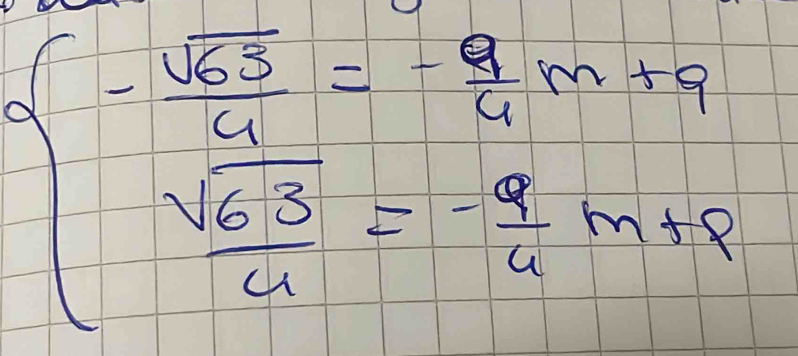 - √63/4 = - 9/4 m + q
√63/4 = - 9/4 m + q